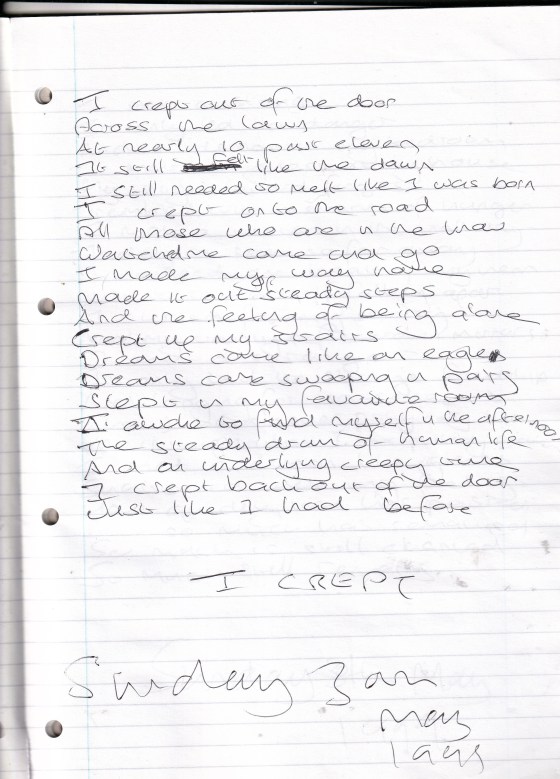 I crept out of the door
Across the lawn
At nearly 10 past eleven
It still felt like the dawn
I still needed to melt like I was born
I crept onto the road
All those who are in the know
Watched me come and go
I made my way home
Made it out steady steps
And the feeling of being alone
Crept up my stairs
Dreams came like an eagle
Dreams came swooping in pairs
Slept in my favourite room
I awoke to find myself in the afternoon
The steady drum of human life
And an underlying creepy tune
I crept back out of the door
Just like I had before
I CREPT
Sunday 3am
May